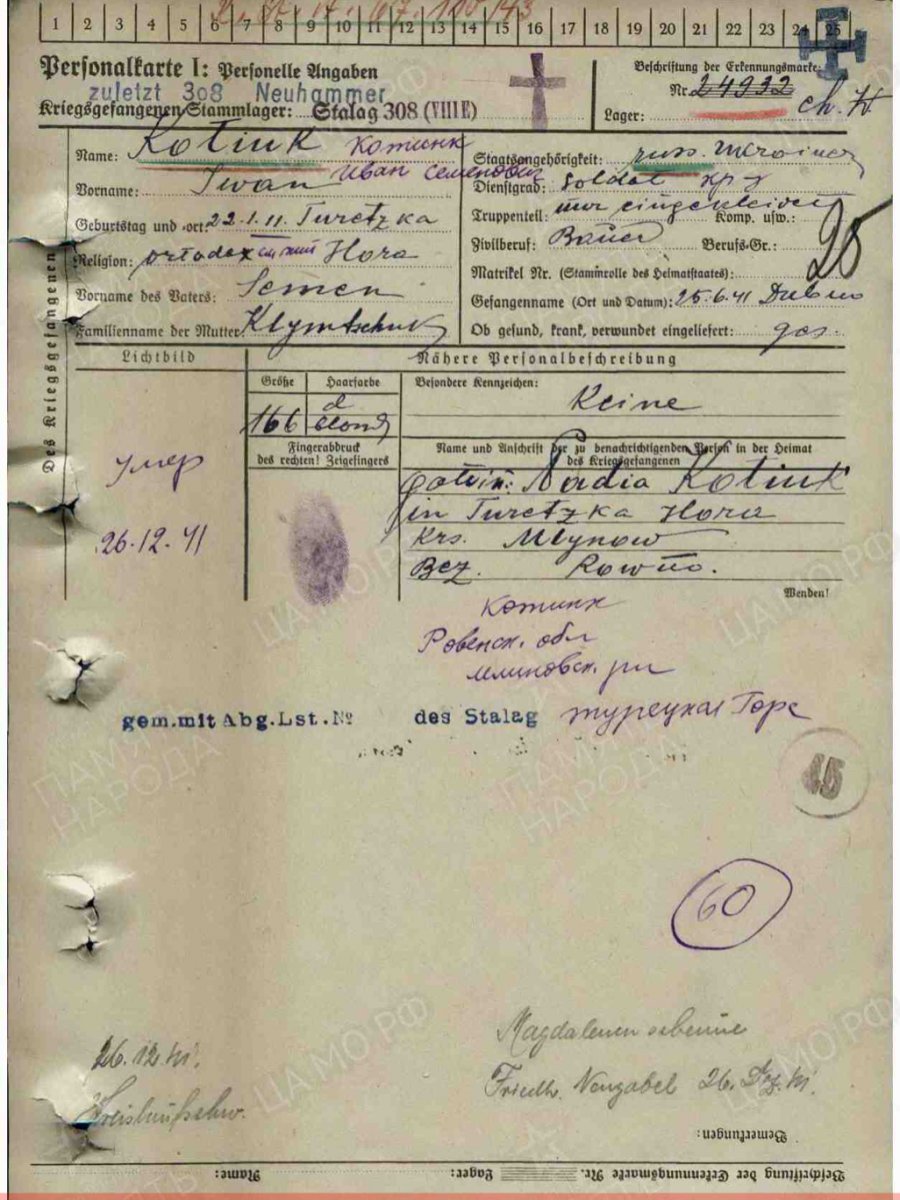 1 2 3 4 5 6 7 8 9 10 11 12 13 14 15 16 17 18 19 20 21 22 23 24 25
Personalkarte I: Personelle Angaben
zuletzt 308 Neuhammer
Kriegsgefangenen-Stammlager: Stalag 308 (VIII E)
Beschriftung der Erkennungsmarke:
Nr. 24932
Lager:
Des Kriegsgefangenen
Name: Kotiuk Котинк
Vorname: Iwan Иван Семенович
Geburtstag und -ort: 22.1.11. Turetzka
Religion: ortodox Hora
Vorname des Vaters: Semen
Familienname der Mutter: Klymtschuk
Staatsangehörigkeit: russ. Ukrainer
Dienstgrad: Soldat кр-ц
Truppenteil: nur eingekleidet Komp. usw.:
Zivilberuf: Bauer Berufs-Gr.:
Matrikel Nr. (Stammrolle des Heimatstaates):
Gefangenname (Ort und Datum): 25.6.41 Dubno
Ob gesund, krank, verwundet eingeliefert: ges.
25
Lichtbild
Nähere Personalbeschreibung
Größe Haarfarbe Besondere Kennzeichen:
166 d blond Keine
Fingerabdruck
des rechten! Zeigefingers
Name und Anschrift der zu benachrichtigenden Person in der Heimat
des Kriegsgefangenen
Gattin: Nadia Kotiuk
in Turetzka Hora
Krs. Mlynow
Bez. Rowno.
Wenden!
умер
26.12.41
Котинк
Ровенск. обл
Млиновск. рн
турецкая Гора
gem.mit Abg.Lst.№ des Stalag
45
60
26.12.41.
Kreislaufschw.
Friedh. Neugabel 26. Dez. 41.
Bemerkungen:
Beschriftung der Erkennungsmarke Nr. Lager: Name:
ПАМЯТЬ НАРОДА
ЦАМО.РФ